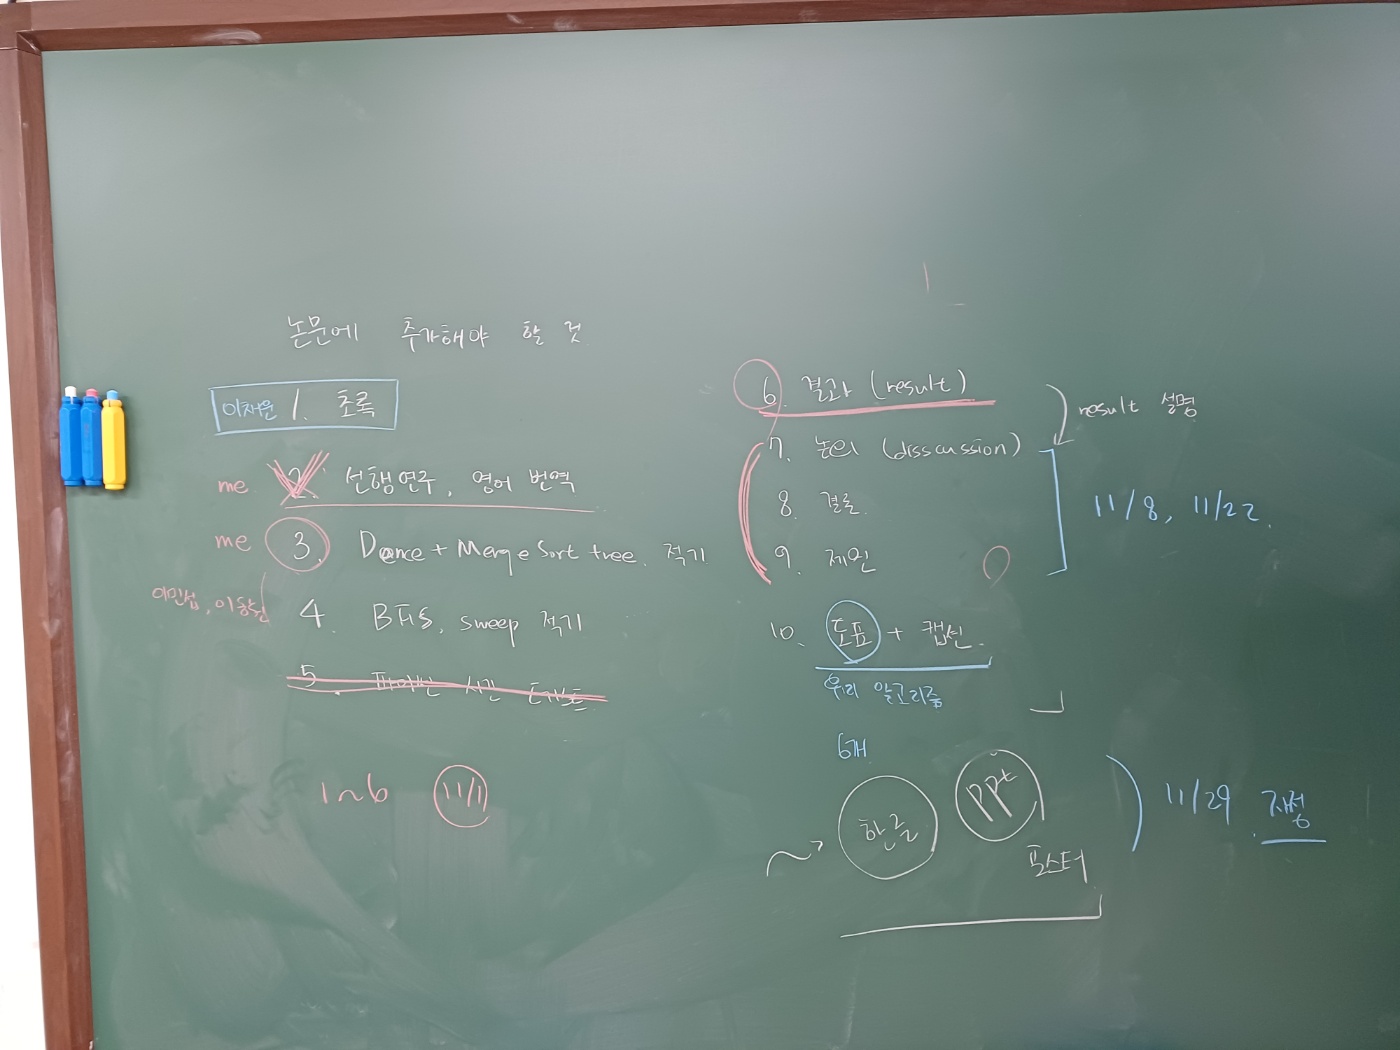 논문에 추가해야 할 것
이채운 1. 초록
me 2. 선행연구, 영어 번역
me 3. Dance + Merge Sort tree. 적기
이민섭, 이동원 4. BFS, sweep 적기
5. 시간
1~6 11/1
6. 결과 (result)
result 설명
7. 논의 (disscussion)
8. 결론
9. 제언
11/8, 11/22.
10. 도표 + 캡션.
우리 알고리즘
6개
한글 PPt
포스터
11/29